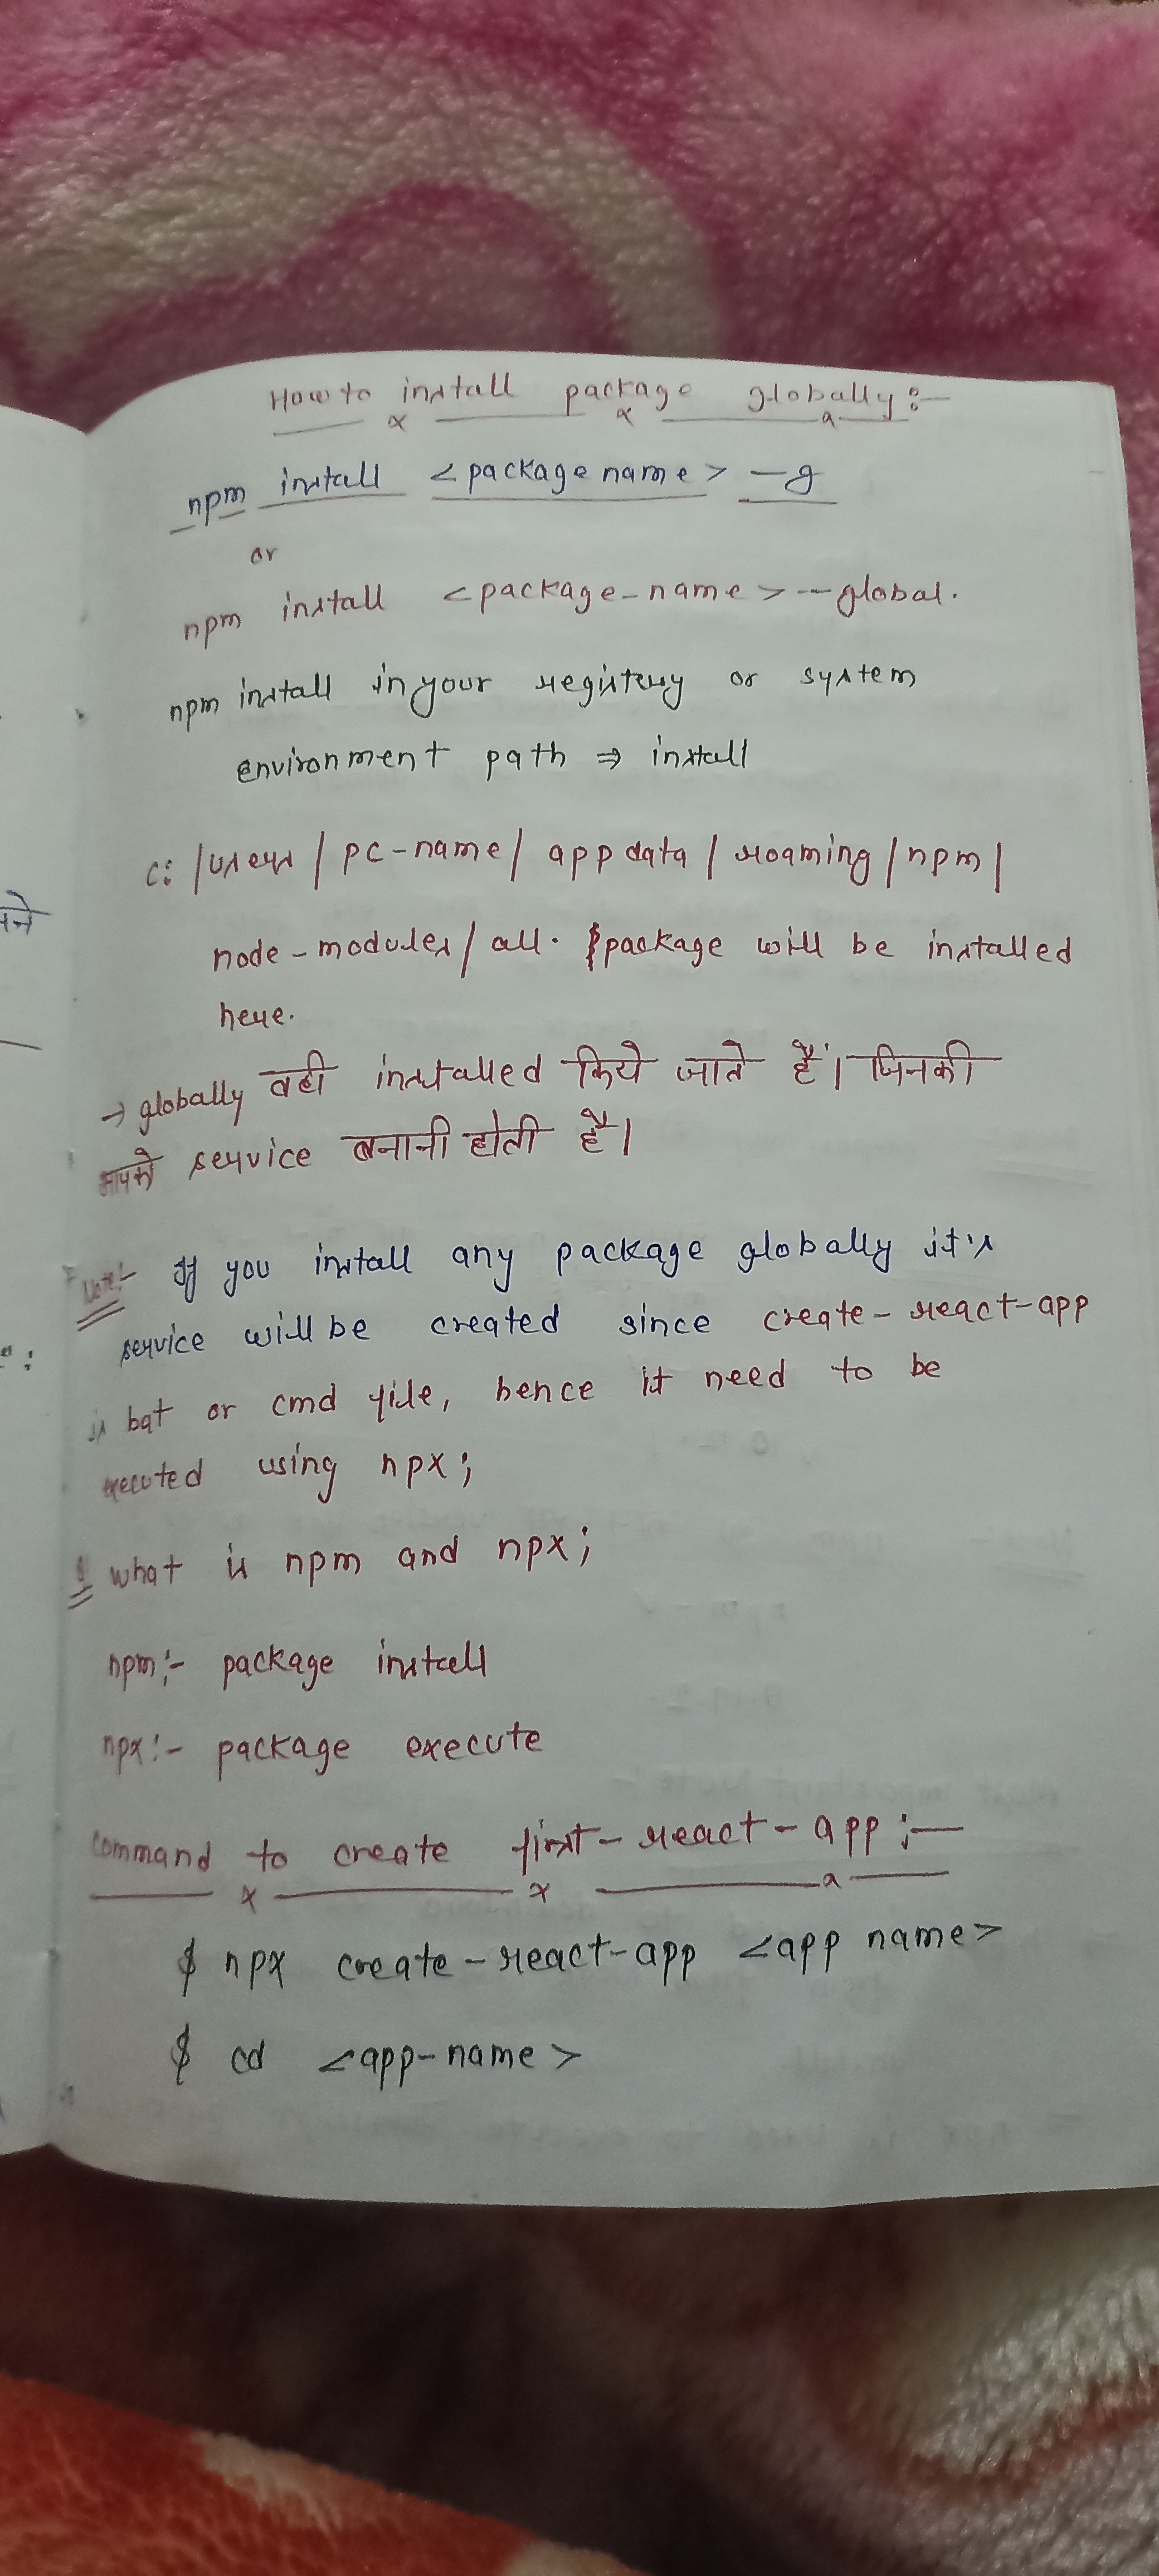 How to install package globally :-
npm install <package name> -g
or
npm install <package-name> --global.
npm install in your registery or system
environment path ⇒ install
c: /users / pc-name / app data / roaming / npm /
node-modules / all. package will be installed
here.
→ globally वही installed किये जाते हैं। जिनकी
आपको service बनानी होती है।
पने
Note:- If you install any package globally it's
service will be created since create-react-app
is bat or cmd file, hence it need to be
executed using npx;
what is npm and npx;
npm:- package install
npx:- package execute
command to create first-react-app :-
$ npx create-react-app <app name>
$ cd <app-name>